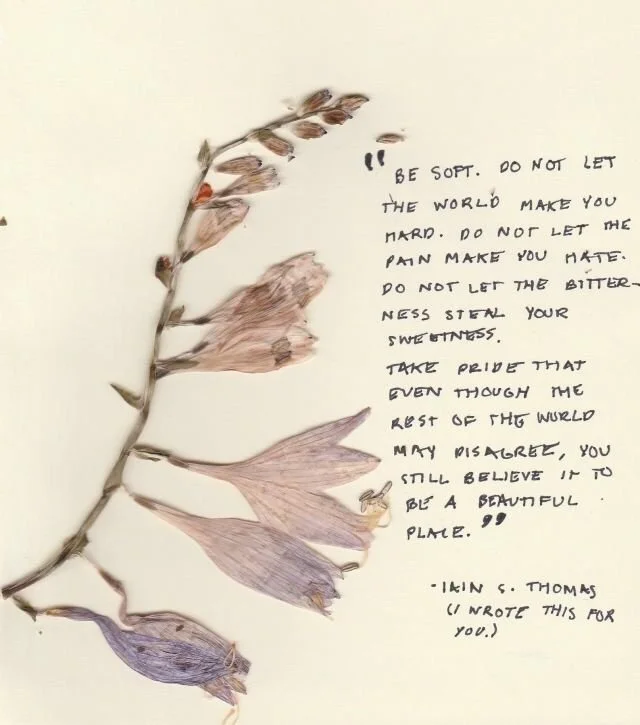 "BE SOFT. DO NOT LET
THE WORLD MAKE YOU
HARD. DO NOT LET THE
PAIN MAKE YOU HATE.
DO NOT LET THE BITTER-
NESS STEAL YOUR
SWEETNESS.
TAKE PRIDE THAT
EVEN THOUGH THE
REST OF THE WORLD
MAY DISAGREE, YOU
STILL BELIEVE IT TO
BE A BEAUTIFUL
PLACE."
-IAIN S. THOMAS
(I WROTE THIS FOR
YOU.)